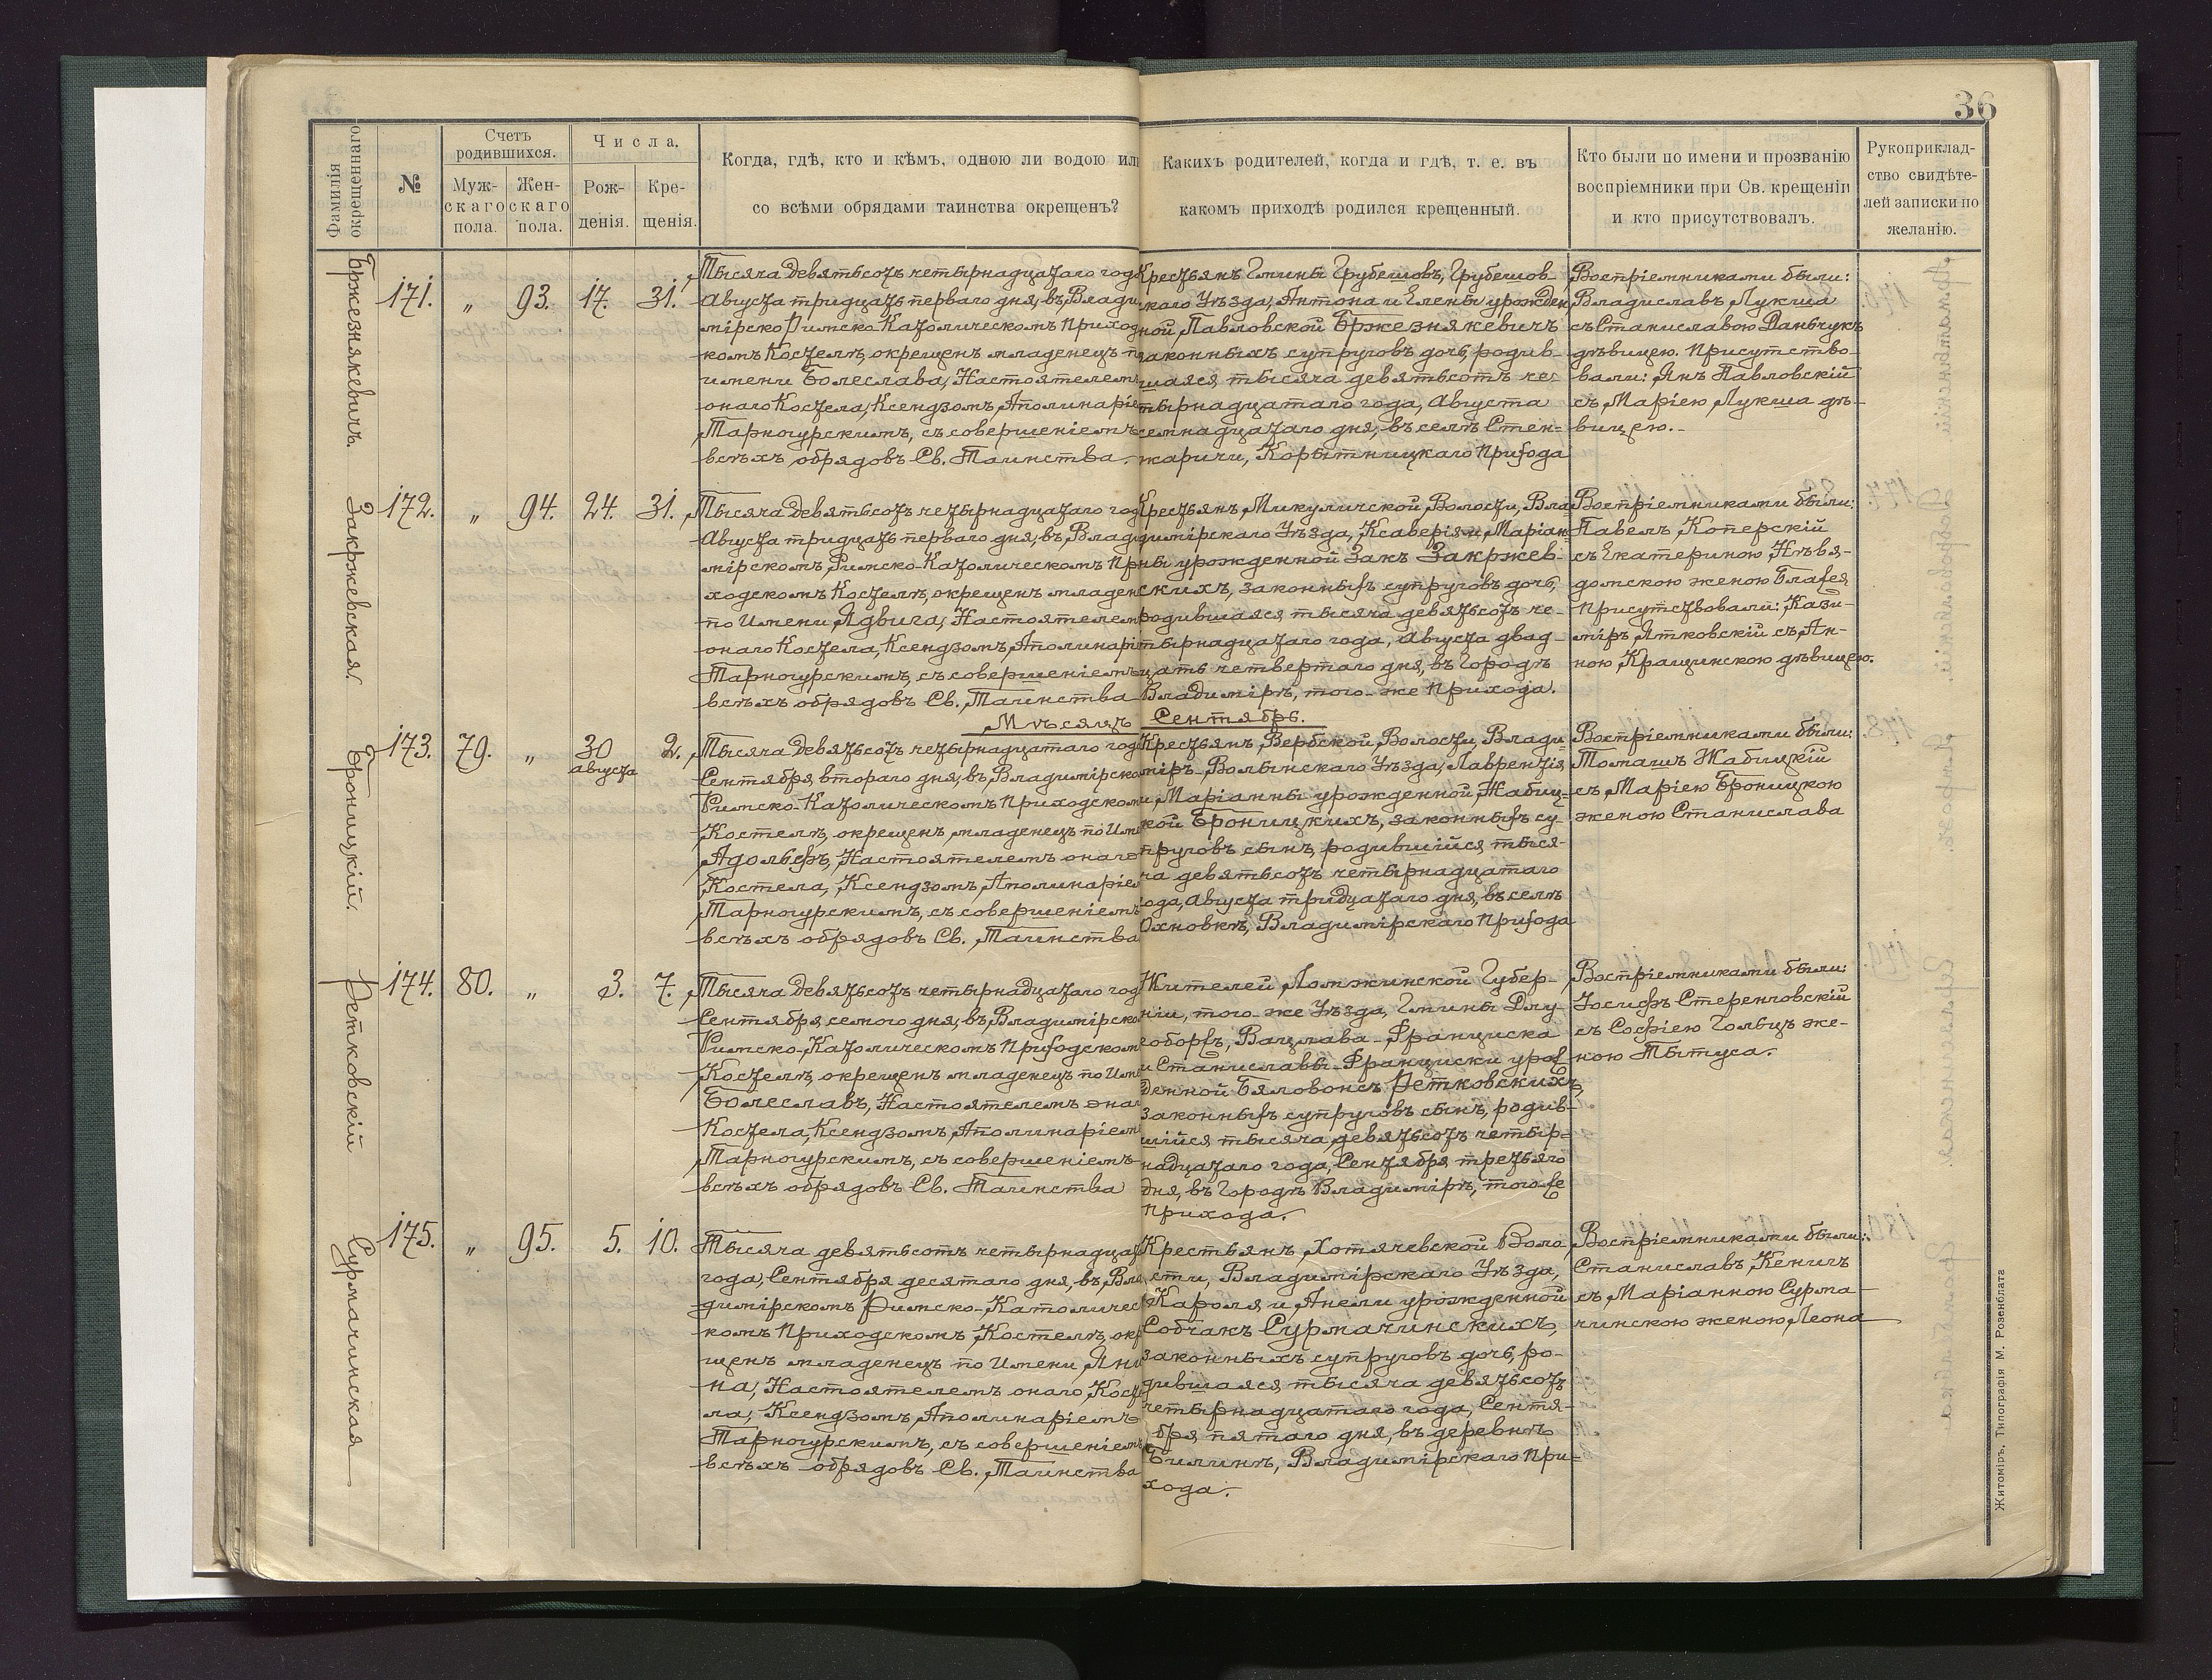 36
Фамилія
окрещеннаго
№
Счетъ
родившихся.
Муж-
скаго
пола.
Жен-
скаго
пола.
Числа.
Рож-
денія.
Кре-
щенія.
Когда, гдѣ, кто и кѣмъ, одною ли водою или
со всѣми обрядами таинства окрещенъ?
Какихъ родителей, когда и гдѣ, т. е. въ
какомъ приходѣ родился крещенный.
Кто были по имени и прозванію
воспріемники при Св. крещеніи
и кто присутствовалъ.
Рукоприклад-
ство свидѣте-
лей записки по
желанію.
Бржезнякевичъ.
171. „ 93. 17. 31.
Тысяча девятьсотъ четырнадцатаго года
Августа тридцать перваго дня, въ Влади
мірско Римско-Католическомъ Приход
комъ Костелѣ, окрещенъ младенецъ п
имени Болеслава, Настоятелемъ
онаго Костела, Ксендзомъ Аполинаріе
Тарногурскимъ, съ совершеніемъ
всѣхъ обрядовъ Св. Таинства.
Крестьянъ Гмины Грубешовъ, Грубешов-
скаго Уѣзда, Антона и Елены урожден
ной Павловской Бржезнякевичъ
законныхъ супруговъ дочь, родив-
шаяся тысяча девятьсотъ че-
тырнадцатаго года, Августа
семнадцатаго дня, въ селѣ Стен-
жаричи, Корытницкаго Прихода
Востріемниками были:
Владиславъ Лукша
съ Станиславою Даньчукъ
дѣвицею. Присутство-
вали: Янъ Павловскій
съ Маріею Лукша дѣ-
вицею.-
Закржевская.
172. „ 94. 24. 31.
Тысяча девятьсотъ четырнадцатаго год
Августа тридцать перваго дня, въ Влад
мірскомъ Римско-Католическомъ Пр
ходскомъ Костелѣ, окрещенъ младен
по Имени Ядвига, Настоятелем
онаго Костела, Ксендзомъ Аполинарі
Тарногурскимъ, съ совершеніемъ
всѣхъ обрядовъ Св. Таинства
Крестьянъ Микуличской Волости, Вла
димірскаго Уѣзда, Ксаверія и Маріан-
ны урожденной Закъ Закржев-
скихъ, законныхъ супруговъ дочь,
родившаяся тысяча девятьсотъ че-
тырнадцатаго года, Августа двад-
цать четвертаго дня, въ Городѣ
Владимірѣ, того-же Прихода.
Востріемниками были:
Павелъ Коперскій
съ Екатериною Нѣвя-
домскою женою Блажея
Присутствовали: Кази-
міръ Ятковскій съ Ан-
ною Кращинскою дѣвицею.
Мѣсяцъ Сентябрь.
Броницкій.
173. 79. „ 30 2.
августа
Тысяча девятьсотъ четырнадцатаго год
Сентября втораго дня, въ Владимірско
Римско-Католическомъ Приходском
Костелѣ, окрещенъ младенецъ по Име
Адольфъ, Настоятелемъ онаго
Костела, Ксендзомъ Аполинаріем
Тарногурскимъ, съ совершеніемъ
всѣхъ обрядовъ Св. Таинства
Крестьянъ, Вербской Волости, Влади-
міръ-Волынскаго Уѣзда, Лаврентія
и Маріанны урожденной Жабиц-
кой Броницкихъ, законныхъ су-
пруговъ сынъ, родившійся тыся-
ча девятьсотъ четырнадцатаго
года, Августа тридцатаго дня, въ селѣ
Охновкѣ, Владимірскаго Прихода
Востріемниками были:
Томашъ Жабицкій
съ Маріею Броницкою
женою Станислава
Ретковскій
174. 80. „ 3. 7.
Тысяча девятьсотъ четырнадцатаго год
Сентября седьмого дня, въ Владимірско
Римско-Католическомъ Приходском
Костелѣ, окрещенъ младенецъ по Име
Болеславъ, Настоятелемъ онаг
Костела, Ксендзомъ Аполинаріем
Тарногурскимъ, съ совершеніемъ
всѣхъ обрядовъ Св. Таинства
Жителей Ломжинской Губер-
ніи, того-же Уѣзда, Гмины Длу
гоборжъ, Вацлава-Франциска
и Станиславы-Франциски урож
денной Бяловонсъ Ретковскихъ,
законныхъ супруговъ сынъ, родив-
шійся тысяча девятьсотъ четыр-
надцатаго года, Сентября третьяго
дня, въ Городѣ Владимірѣ, того же
Прихода.
Востріемниками были:
Іосифъ Стеренговскій
съ Софіею Гольцъ же-
ною Тытуса.
Сурмачинская
175. „ 95. 5. 10.
Тысяча девятьсотъ четырнадцат
года, Сентября десятаго дня, въ Вла
димірскомъ Римско-Католичес
комъ Приходскомъ Костелѣ, окр
щенъ младенецъ по Имени Яни
на, Настоятелемъ онаго Косте
ла, Ксендзомъ Аполинаріемъ
Тарногурскимъ, съ совершеніем
всѣхъ обрядовъ Св. Таинства
Крестьянъ Хотячевской Воло
сти, Владимірскаго Уѣзда,
Кароля и Анели урожденной
Собчакъ Сурмачинскихъ,
законныхъ супруговъ дочь, ро-
дившаяся тысяча девятьсотъ
четырнадцатаго года, Сентя-
бря пятаго дня, въ деревнѣ
Билинѣ, Владимірскаго При-
хода.
Востріемниками были:
Станиславъ Кеничъ
съ Маріанною Сурма-
чинскою женою Леона
Житоміръ, Типографія М. Розенблата